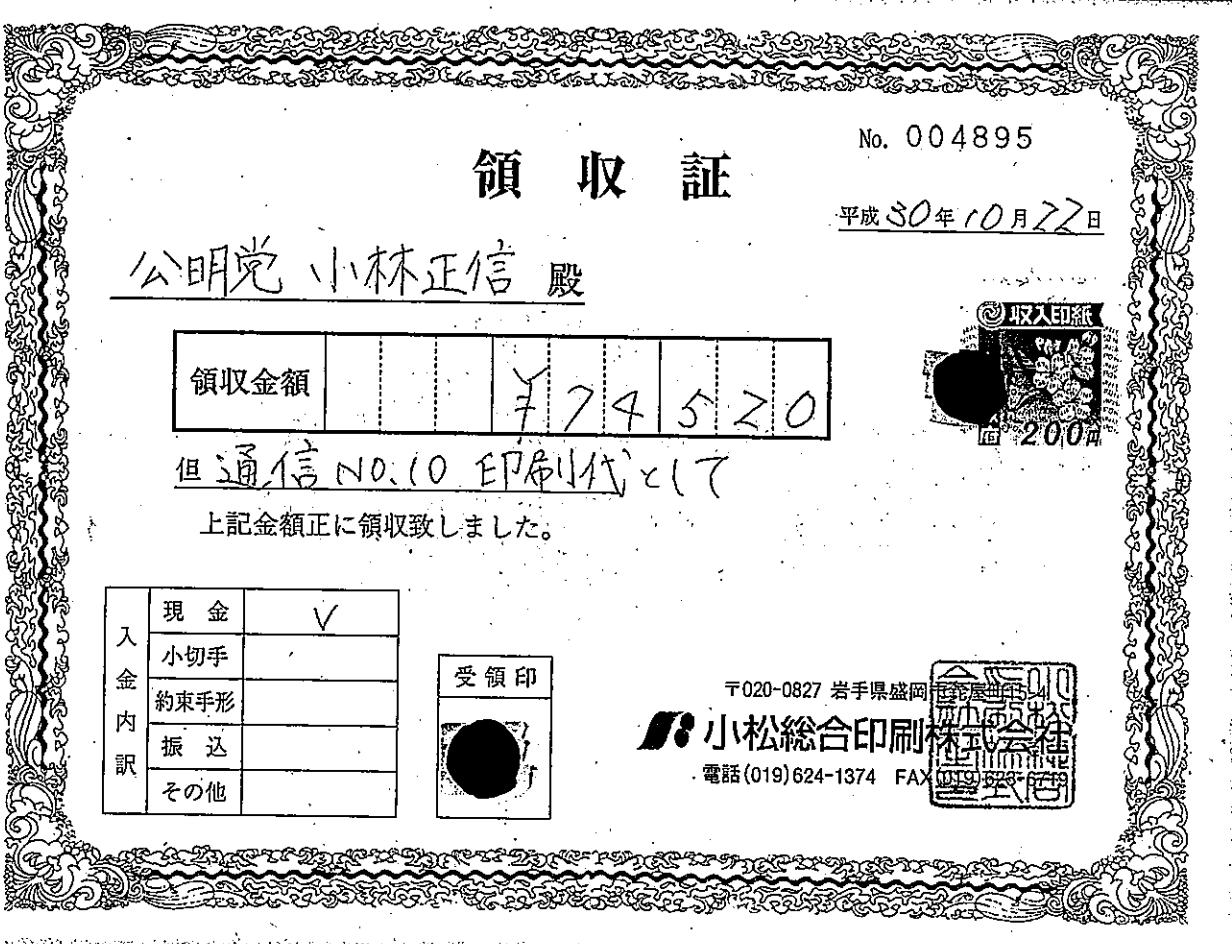 No. 004895
領収証
平成30年10月22日
公明党 小林正信 殿
収入印紙
200円
領収金額 ¥74520
但 通信 NO.10 印刷代として
上記金額正に領収致しました。
入金内訳
現金 V
小切手
約束手形
振込
その他
受領印
〒020-0827 岩手県盛岡市
小松総合印刷株式会社
電話(019)624-1374 FAX